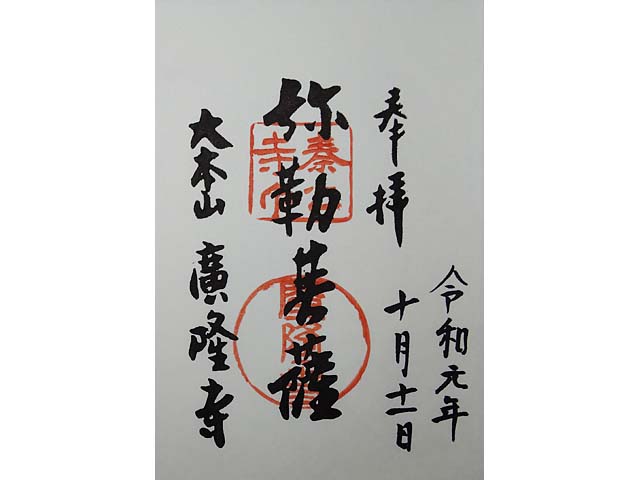 奉拝
令和元年
十月十一日
弥勒菩薩
大本山 廣隆寺